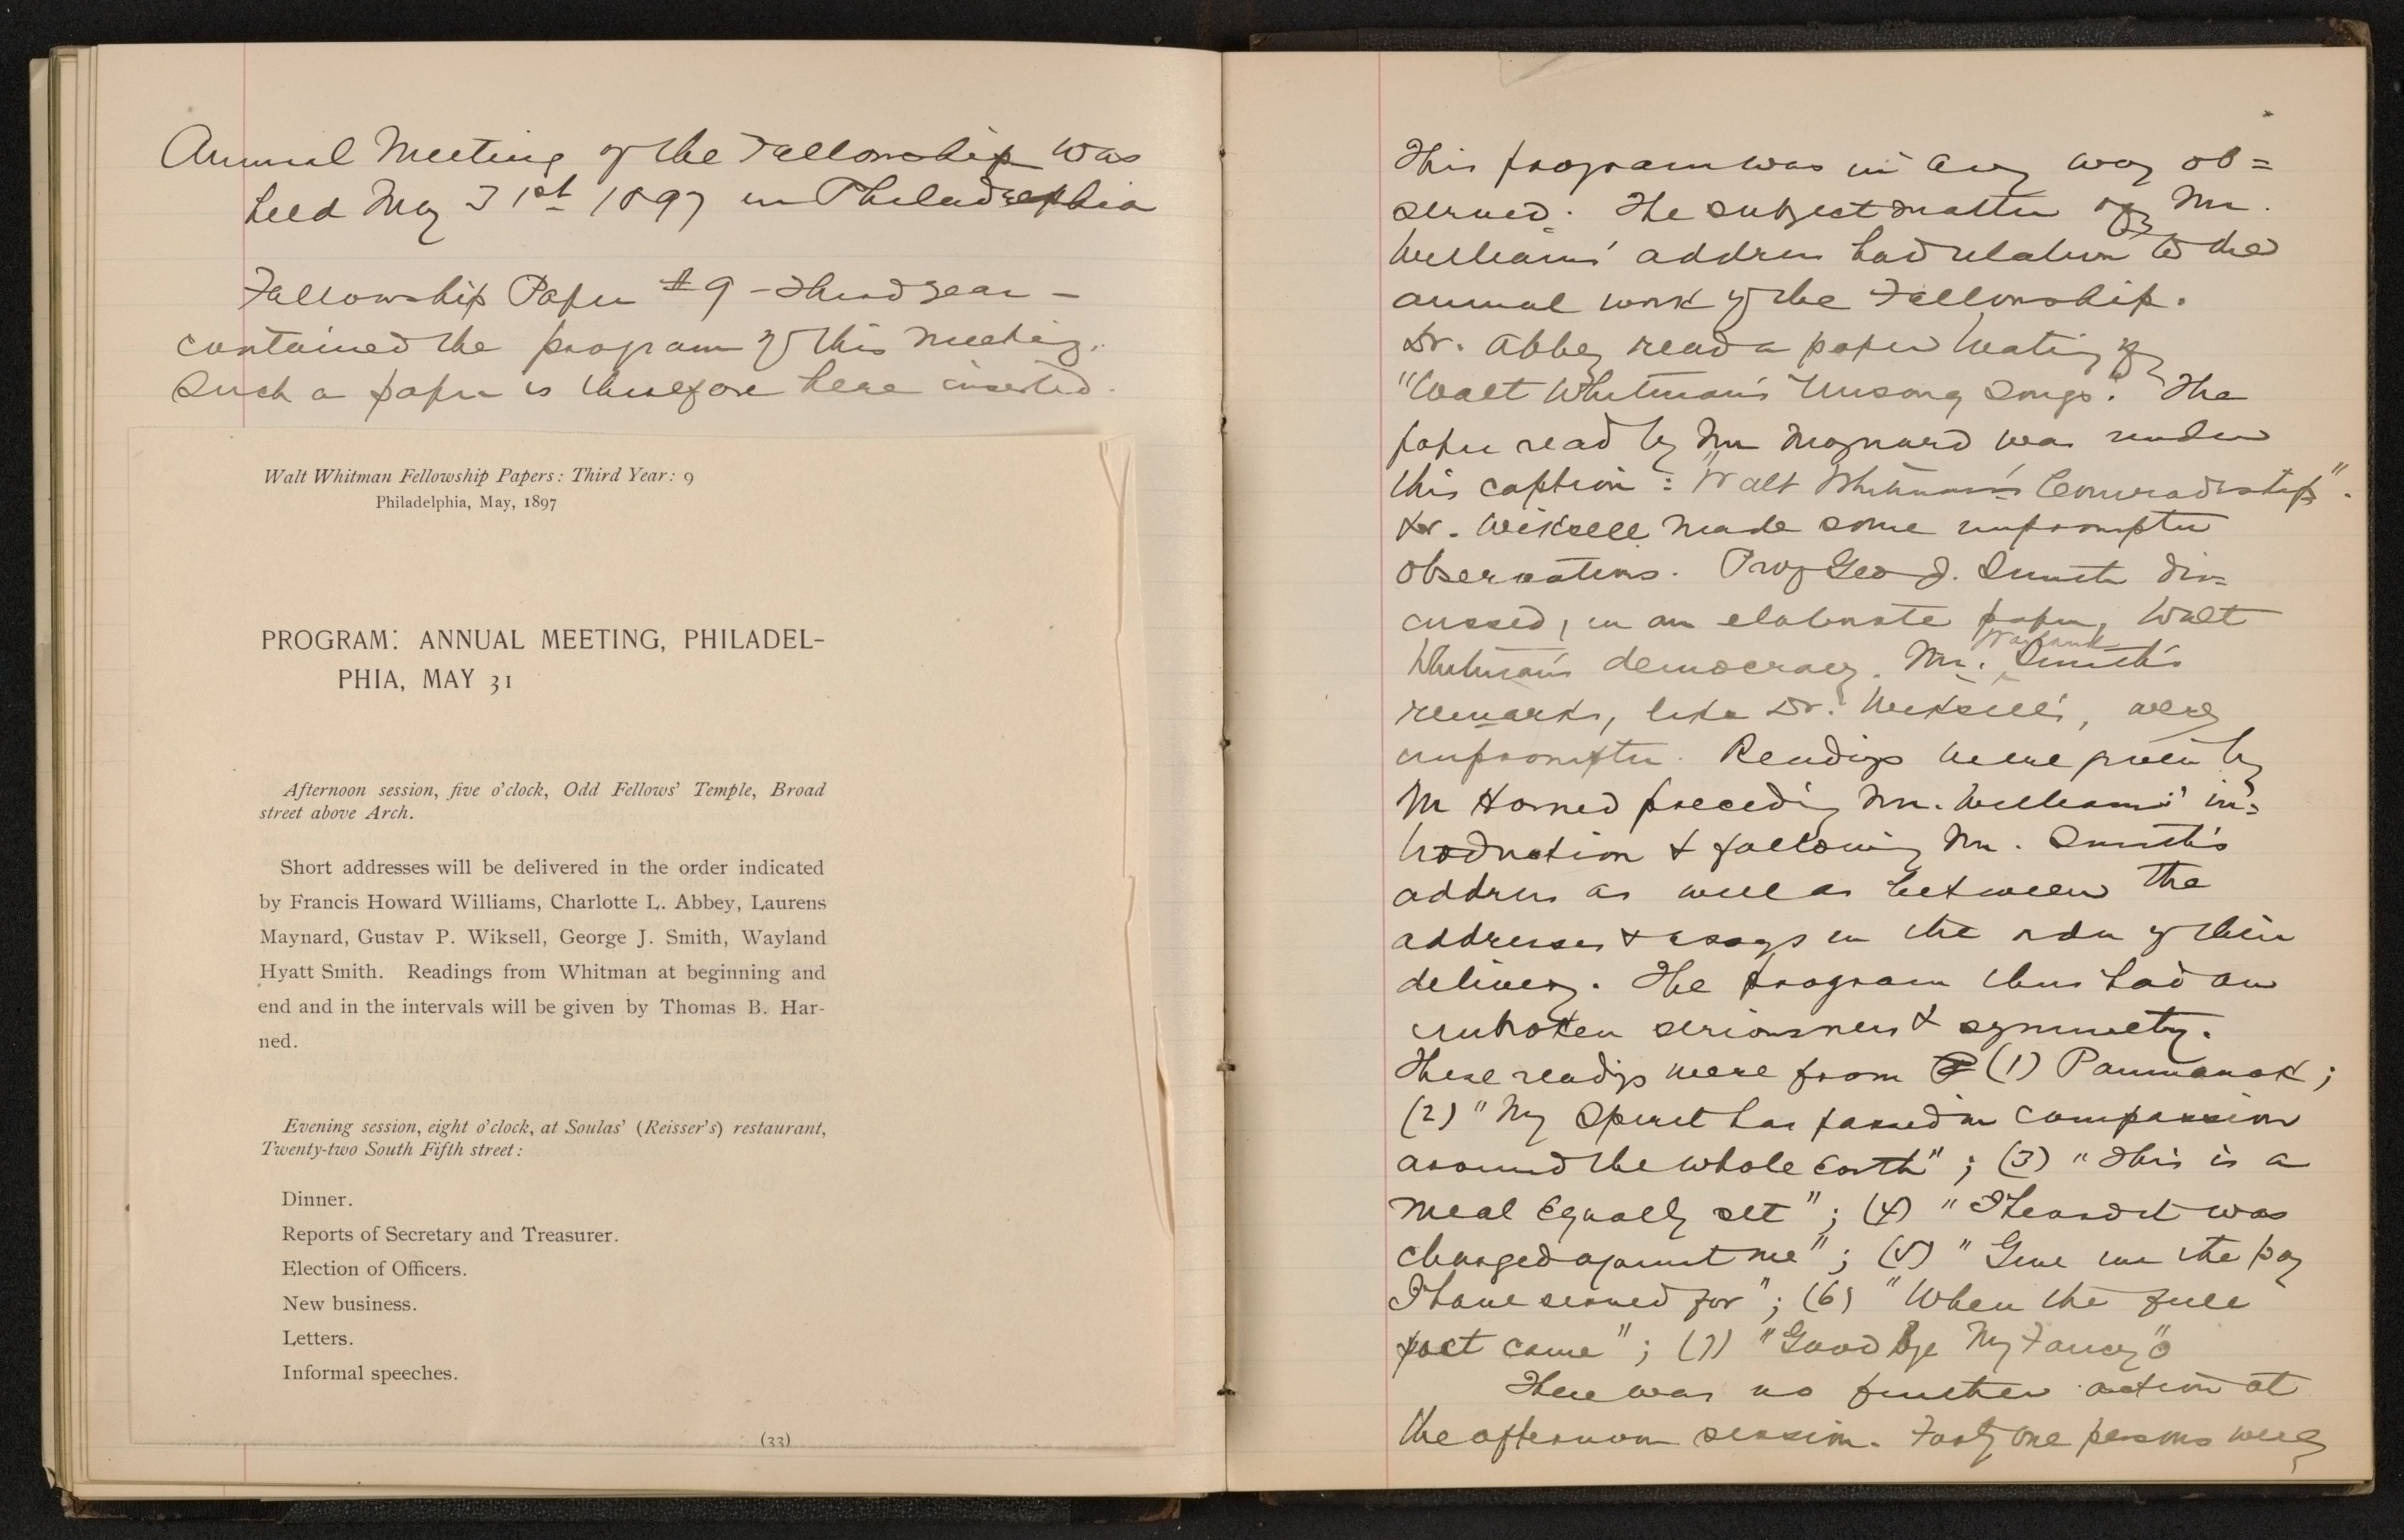 Annual Meeting of the Fellowship was
held May 31st 1897 in Philadelphia
Fellowship Paper #9 – Third Year –
contained the program of this meeting.
Such a paper is therefore here inserted.
Walt Whitman Fellowship Papers: Third Year: 9
Philadelphia, May, 1897
PROGRAM: ANNUAL MEETING, PHILADEL-
PHIA, MAY 31
Afternoon session, five o'clock, Odd Fellows' Temple, Broad
street above Arch.
Short addresses will be delivered in the order indicated
by Francis Howard Williams, Charlotte L. Abbey, Laurens
Maynard, Gustav P. Wiksell, George J. Smith, Wayland
Hyatt Smith. Readings from Whitman at beginning and
end and in the intervals will be given by Thomas B. Har-
ned.
Evening session, eight o'clock, at Soulas' (Reisser's) restaurant,
Twenty-two South Fifth street:
Dinner.
Reports of Secretary and Treasurer.
Election of Officers.
New business.
Letters.
Informal speeches.
(33)
This program was in way ob=
served. The subject matter of Mr.
Williams' address had relation to the
annual work of the Fellowship.
Dr. Abbey read a paper treating of
"Walt Whitman's Unsung Songs." The
paper read by Mr Maynard was under
this caption: "Walt Whitman's Comradeship".
Dr. Wiksell made some impromptu
observations. Prof Geo J. Smith dis=
cussed, in an elaborate paper, Walt
Whitman's democracy. Mr. Wayland Smith's
remarks, like Dr. Wiksell's, were
impromptu. Readings were given by
Mr Harned preceding Mr. Williams' in=
troduction & following Mr. Smith's
address as well as between the
addresses & essays in the order of their
delivery. The program thus had an
unbroken seriousness & symmetry.
These readings were from (1) Paumanok;
(2) "My Spirit has passed in compassion
around the whole earth"; (3) "This is a
meal equally set"; (4) "I heard it was
charged against me"; (5) "Give me the pay
I have served for"; (6) "When the full
fact came"; (7) "Good Bye My Fancy"
There was no further action at
the afternoon session. Forty one persons were